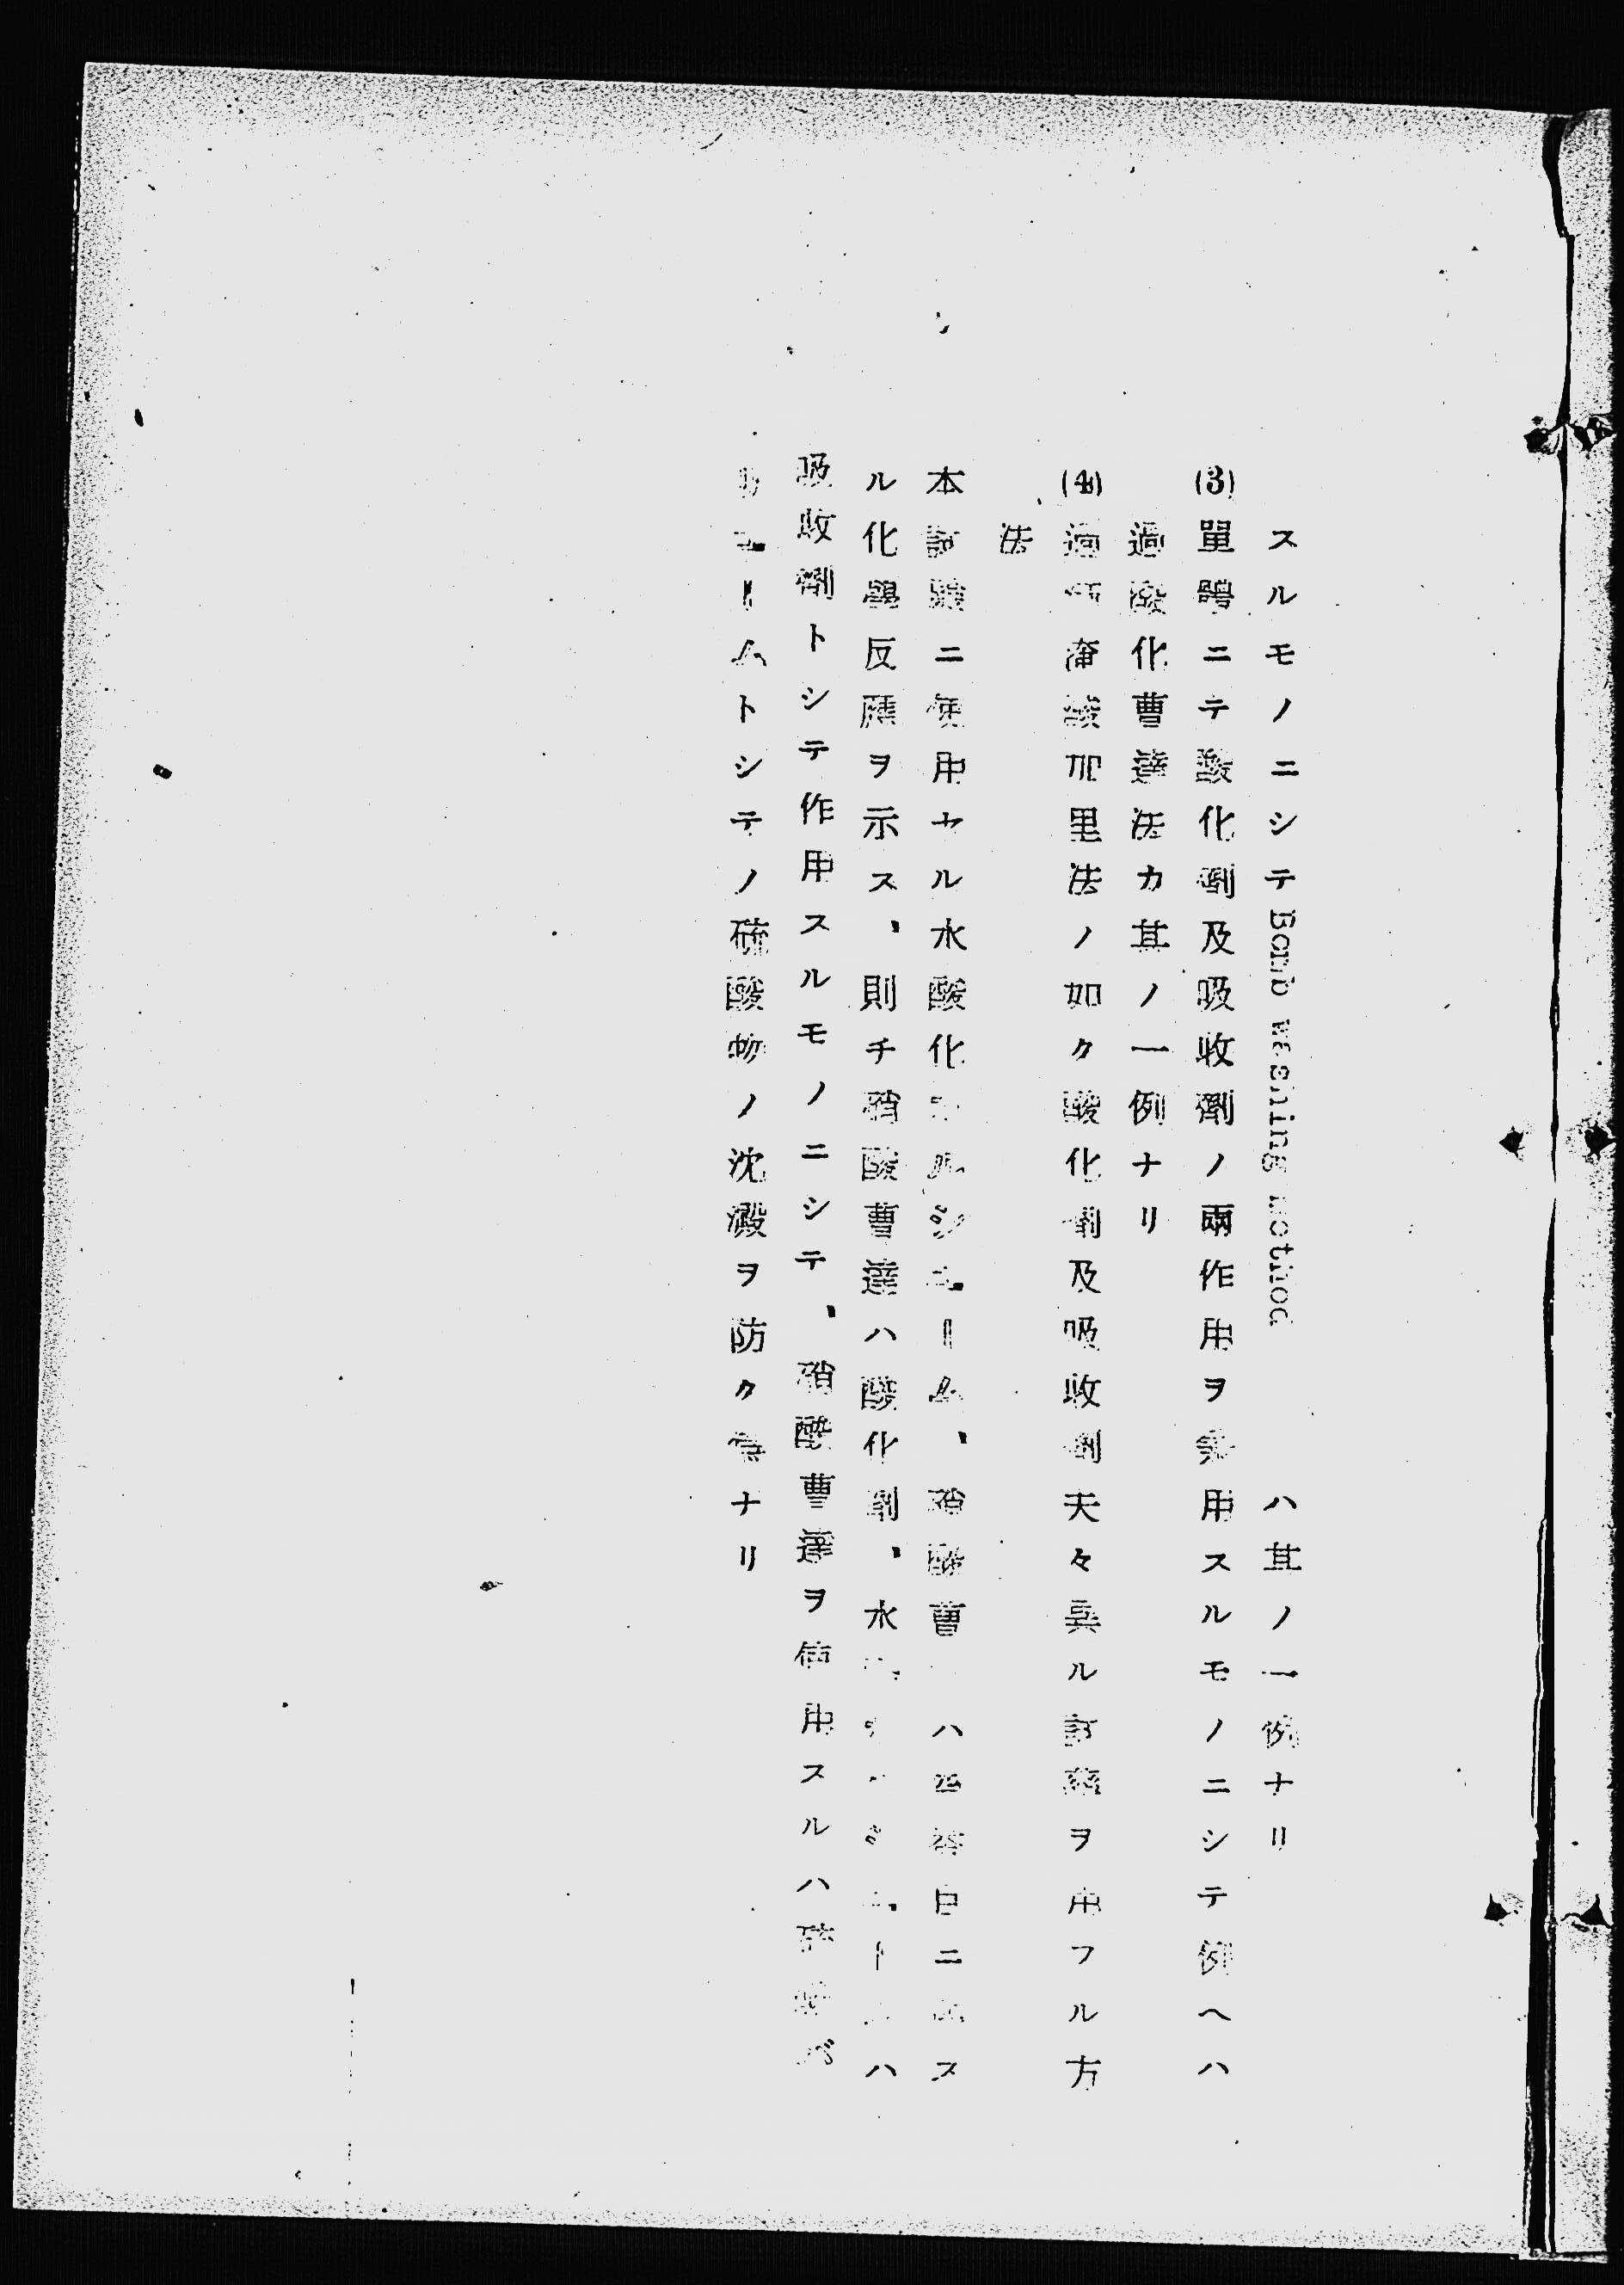 スルモノニシテ Bomb washing method ハ其ノ一例ナリ
(3) 單體ニテ酸化劑及吸收劑ノ兩作用ヲ兼用スルモノニシテ例ヘハ
過酸化曹達法カ其ノ一例ナリ
(4) 過 酸加里法ノ如ク酸化劑及吸收劑夫々異ル試藥ヲ用フル方
法
本試驗ニ使用セル水酸化カルシユーム、硝酸曹 ハ 自ニ スル
ル化學反應ヲ示ス、則チ硝酸曹達ハ酸化劑、水 ハ
吸收劑トシテ作用スルモノニシテ、硝酸曹達ヲ使用スルハ硫酸バ
ユームトシテノ硫酸物ノ沈澱ヲ防ク爲ナリ